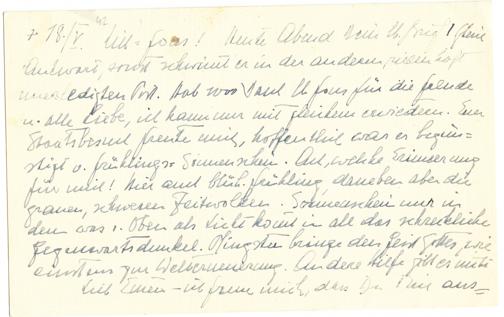 + 18./V. 42 Lilli = Frau! Heute Abend Dein lb. Brief! Gleich
Antwort, sonst schwimmt er in der anderen
unerledigten Post. Hab 1000 Dank lb. für die Freude
u. alle Liebe, ich kann nur mit gleichem erwiedern. Euer
Staatsbesuch freute mich, hoffentlich war er begün-
stigt v. Frühlings- Sonnenschein. Ach, welche Erinnerung
für mich! Hier auch blüh. Frühling, daneben aber die
grauen, schweren Zeitwolken. Sonnenschein nur in
dem was v. Oben als Licht kommt in all das schreckliche
Gegenwartsdunkel. Pfingsten bringe den Geist Gottes, wie
einst uns zur Welterneuerung. Andere Hilfe gibt es nicht
ich freue mich, dass Du aus=